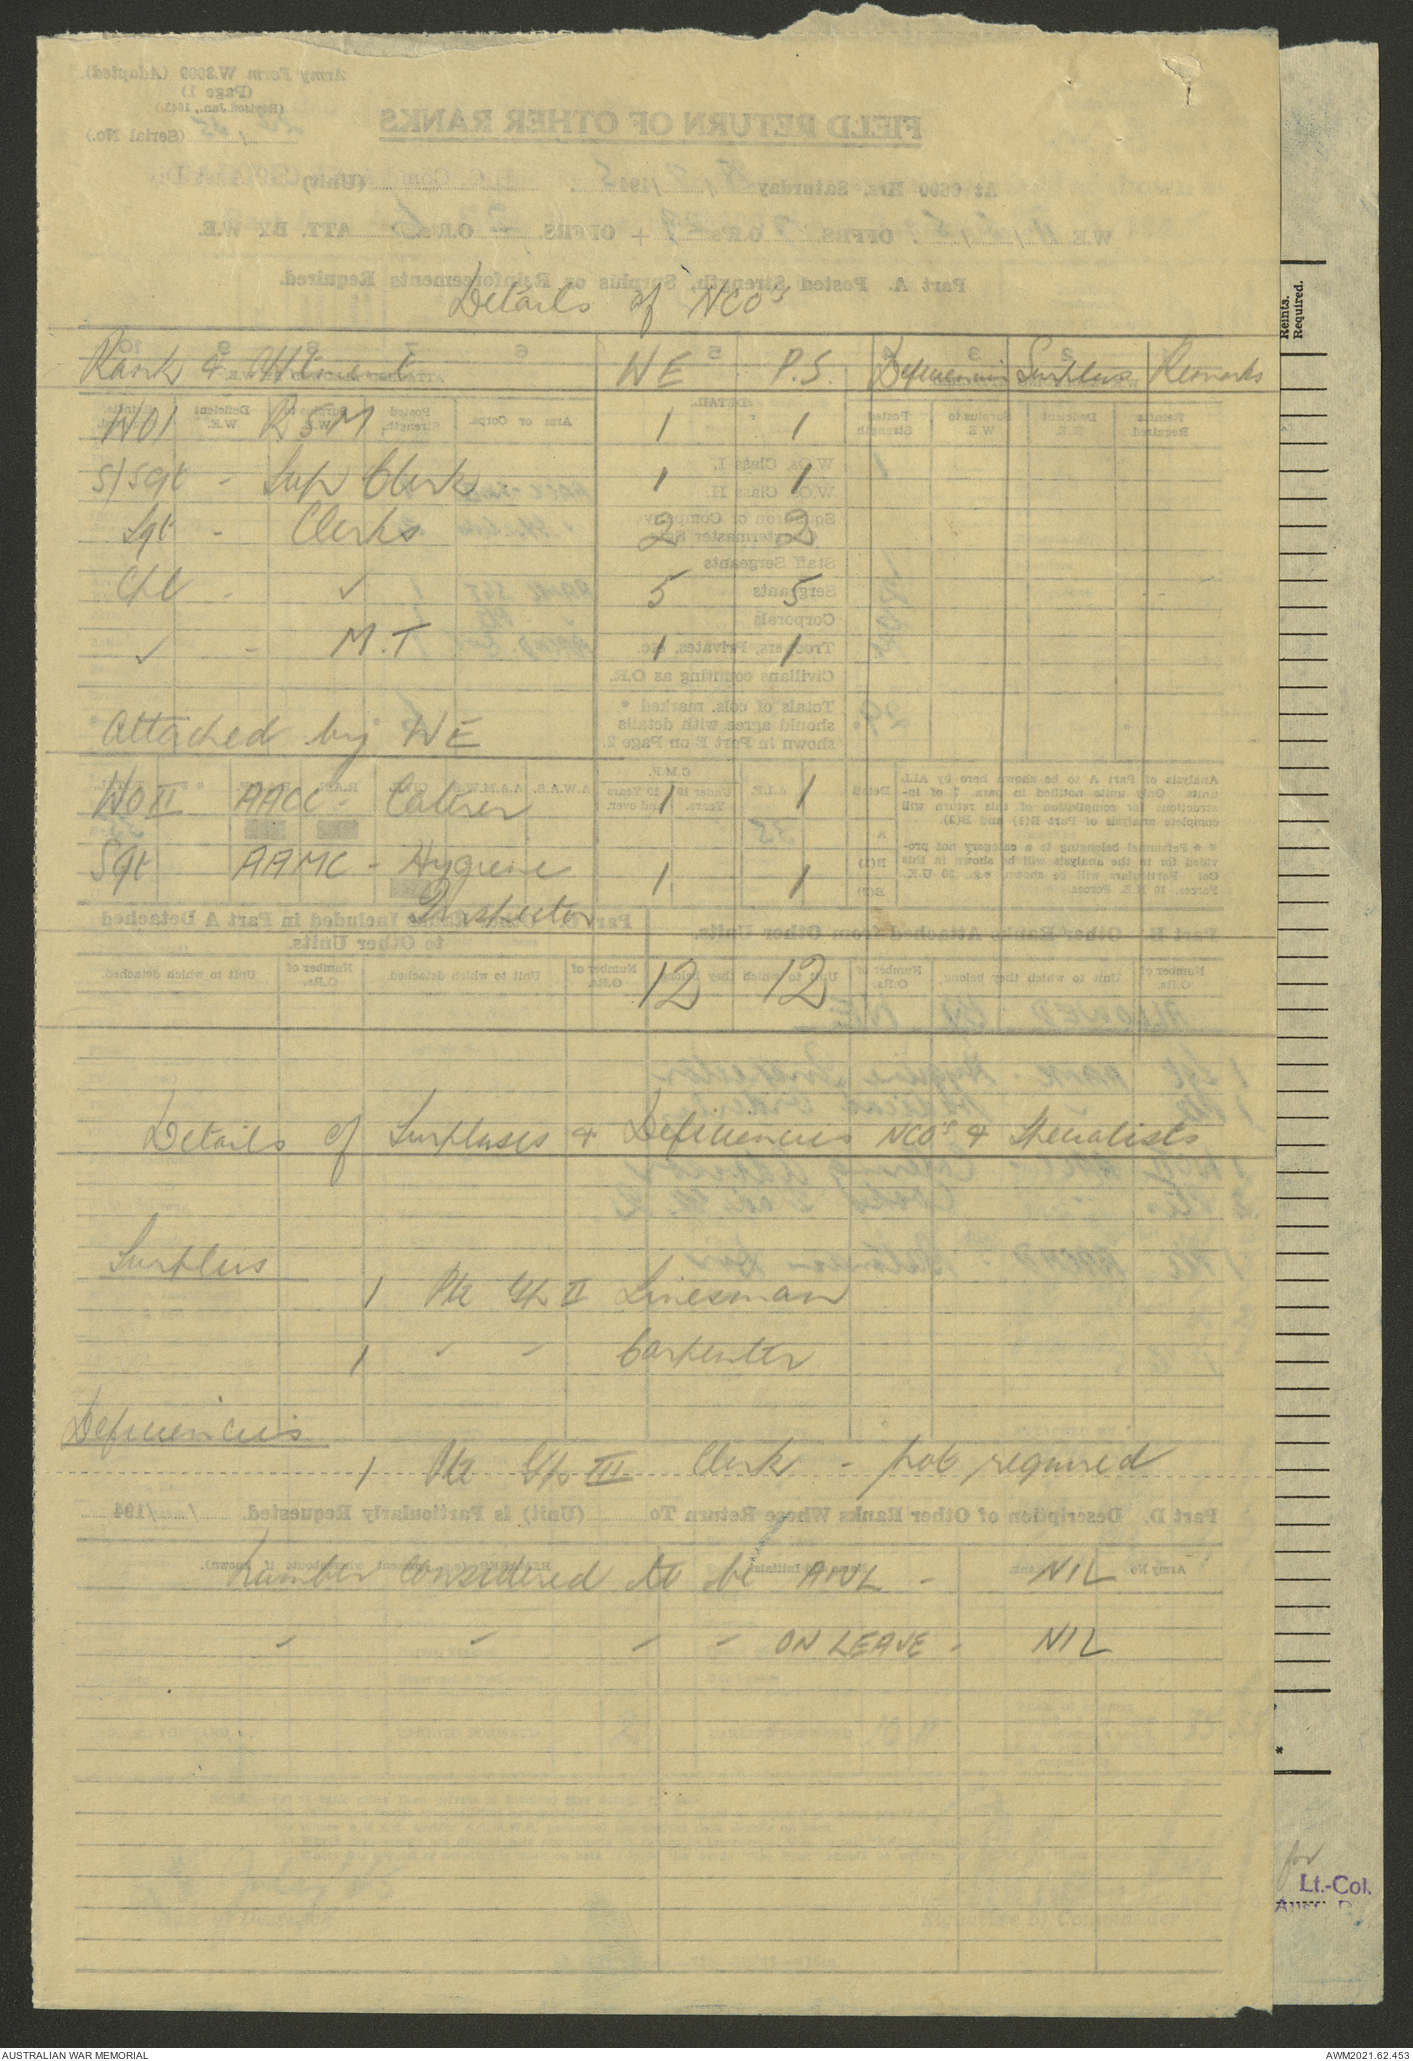 Details of NCO's
Rank & Allotment WE P.S. Deficiencies Surplus Remarks
WO1 RSM 1 1
S/Sgt - Sup Clerk 1 1
Sgt - Clerks 2 2
Cpl - ✓ 5 5
✓ - M.T 1 1
Attached by WE
WO II AACC - Caterer 1 1
Sgt AAMC - Hygiene 1 1
Inspector
12 12
Details of Surpluses & Deficiencies NCO's & Specialists
Surplus
1 Pte Gp II Linesman
1 " " Carpenter
Deficiencies
1 Pte Gp III Clerk - not required
Number Considered to be AWL - NIL
" " " " ON LEAVE - NIL
Reints.
Required.
*
for
Lt.-Col.
AUSTRALIAN WAR MEMORIAL
AWM2021.62.453